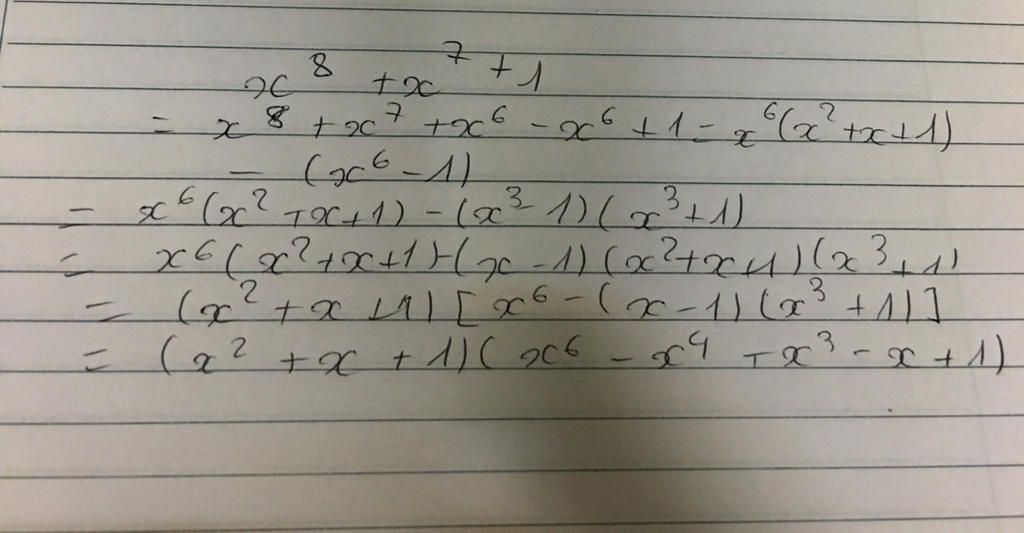 x⁸ + x⁷ + 1
= x⁸ + x⁷ + x⁶ - x⁶ + 1 = x⁶(x² + x + 1)
- (x⁶ - 1)
= x⁶(x² + x + 1) - (x³ - 1)(x³ + 1)
= x⁶(x² + x + 1) - (x - 1)(x² + x + 1)(x³ + 1)
= (x² + x + 1)[x⁶ - (x - 1)(x³ + 1)]
= (x² + x + 1)(x⁶ - x⁴ + x³ - x + 1)